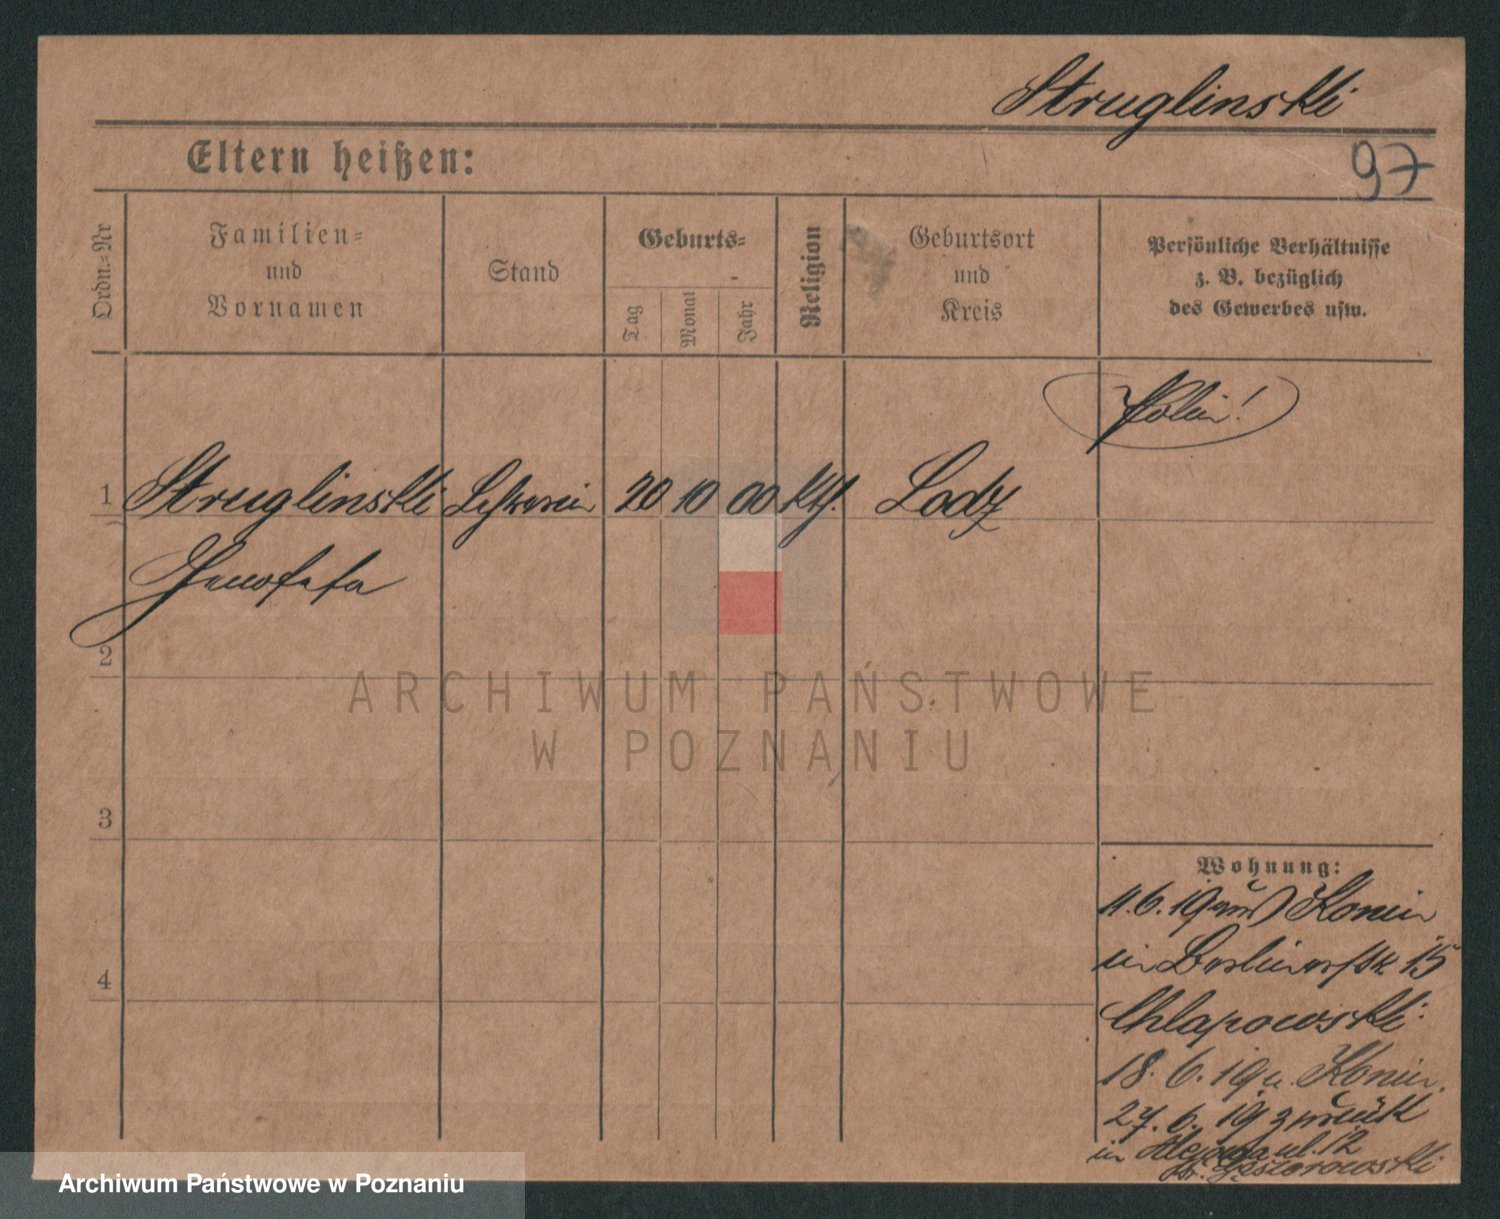 Struglinski
Eltern heißen:
97
Ordn.-Nr
Familien-
und
Vornamen
Stand
Geburts-
Tag
Monat
Jahr
Religion
Geburtsort
und
Kreis
Persönliche Verhältnisse
z. B. bezüglich
des Gewerbes usw.
Polin!
1 Struglinski 20 10 00 kth. Lodz
Genofefa
2
3
4
Wohnung:
4.6.19 aus Konin
in Berlinerstr. 15
Chlapowski
18.6.19 n. Konin.
27.6.19 zurück
in ul. 12
ARCHIWUM PAŃSTWOWE
W POZNANIU
Archiwum Państwowe w Poznaniu